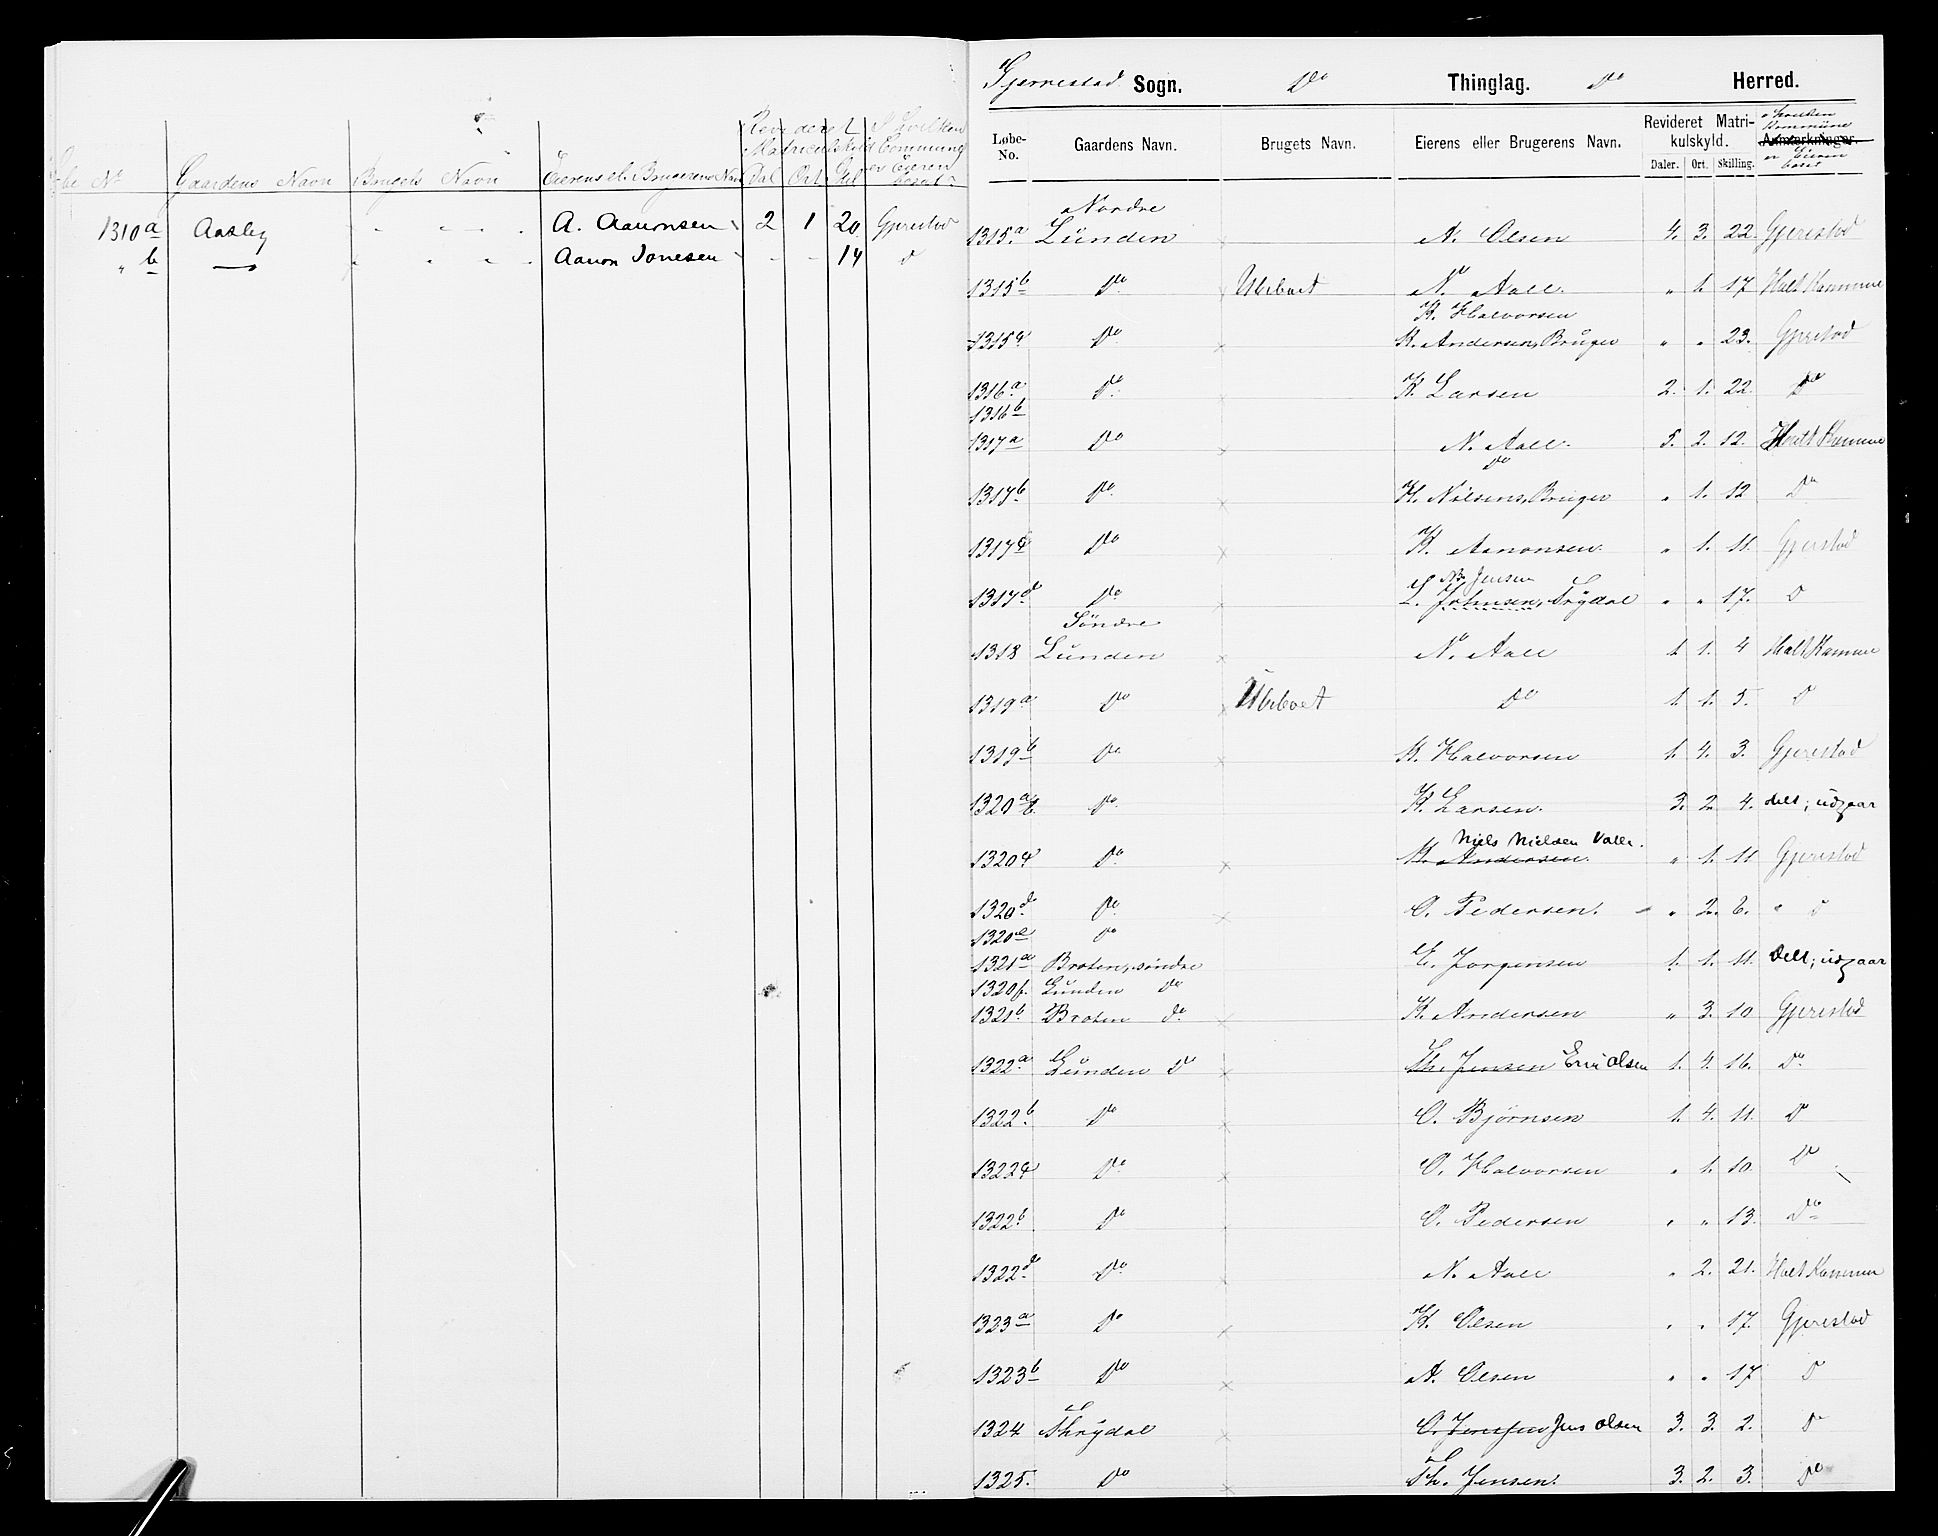 Revideret I hvilken
Matriculskyld Commune
er Eieren
Løbe No Gaardens Navn Brugets Navn Eierens el. Brugerens Navn Dal Ort Skl bosat
1310a Aasley A. Aaronsen 2 1 20 Gjerestad
" b — Aaron Jonesen - - 14 d
Gjerrestad Sogn. Do Thinglag. Do Herred.
Løbe-No. Gaardens Navn. Brugets Navn. Eierens eller Brugerens Navn. Revideret Matrikulskyld. Anmærkninger. i hvilken Kommune er Eieren bosat
Daler. Ort. Skilling.
Nordre
1315a Lunden N. Olsen 4. 3. 22. Gjerestad
1315b Do N. Aall " 1. 17 Holt Kommune
K. Halvorsen
1315c Do K. Andersen, Bruger " " 23. Gjerestad
1316a Do K. Larsen 2. 1. 22. Do
1316b
1317a Do N. Aall. 5. 2. 12. Holt Kommune
Do
1317b Do H. Nilsens, Bruger " 1. 12 Do
1317c Do K. Aanonsen " 1. 11. Gjerestad
Jensen
1317d Do L. Johnsen, Trydal " " 17. D
Søndre
1318 Lunden N. Aall 1 1. 4 Holt Komme
1319a Do Do 1. 1. 5. D
1319b Do K. Halvorsen 1. 4. 3. Gjerestad
1320a Do K. Larsen. 3. 2 4. delt; udgaar
Niels Nielsen Valle.
1320c Do K. Andersen. " 1. 11 Gjerestad
1320d Do O. Pedersen. " 2. 6. " D
1320e Do
1321a Broten, søndre E. Jorgensen 1. 1. 11. Delt; udgaar
1320f. Lunden Do
1321b Broten do K. Andersen " 3. 10 Gjerestad
1322a Lunden Do Th. Jensen Eric Olsen 1. 4. 16. Do
1322b Do O. Bjørnsen 1. 4. 11. D
1322c Do O. Halvorsen " 1. 10. Do
1322b Do O. Pedersen " " 13. Do
1322d Do N. Aall " 2. 21. Holt Kommune
1323a Do K. Olsen " " 17. Gjerestad
1323b Do A. Olsen " " 17 D
1324 Thrydal O. Jensen Jens Olsen 3. 3. 2. D
1325. Do Th. Jensen. 3. 2. 3. Do